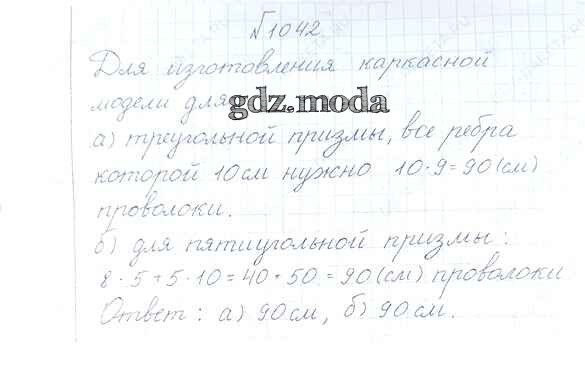 №1042
Для изготовления каркасной
модели для
gdz.moda
а) треугольной призмы, все ребра
которой 10см нужно 10·9=90(см)
проволоки.
б) для пятиугольной призмы:
8·5+5·10=40+50=90(см) проволоки
Ответ: а) 90см, б) 90см.